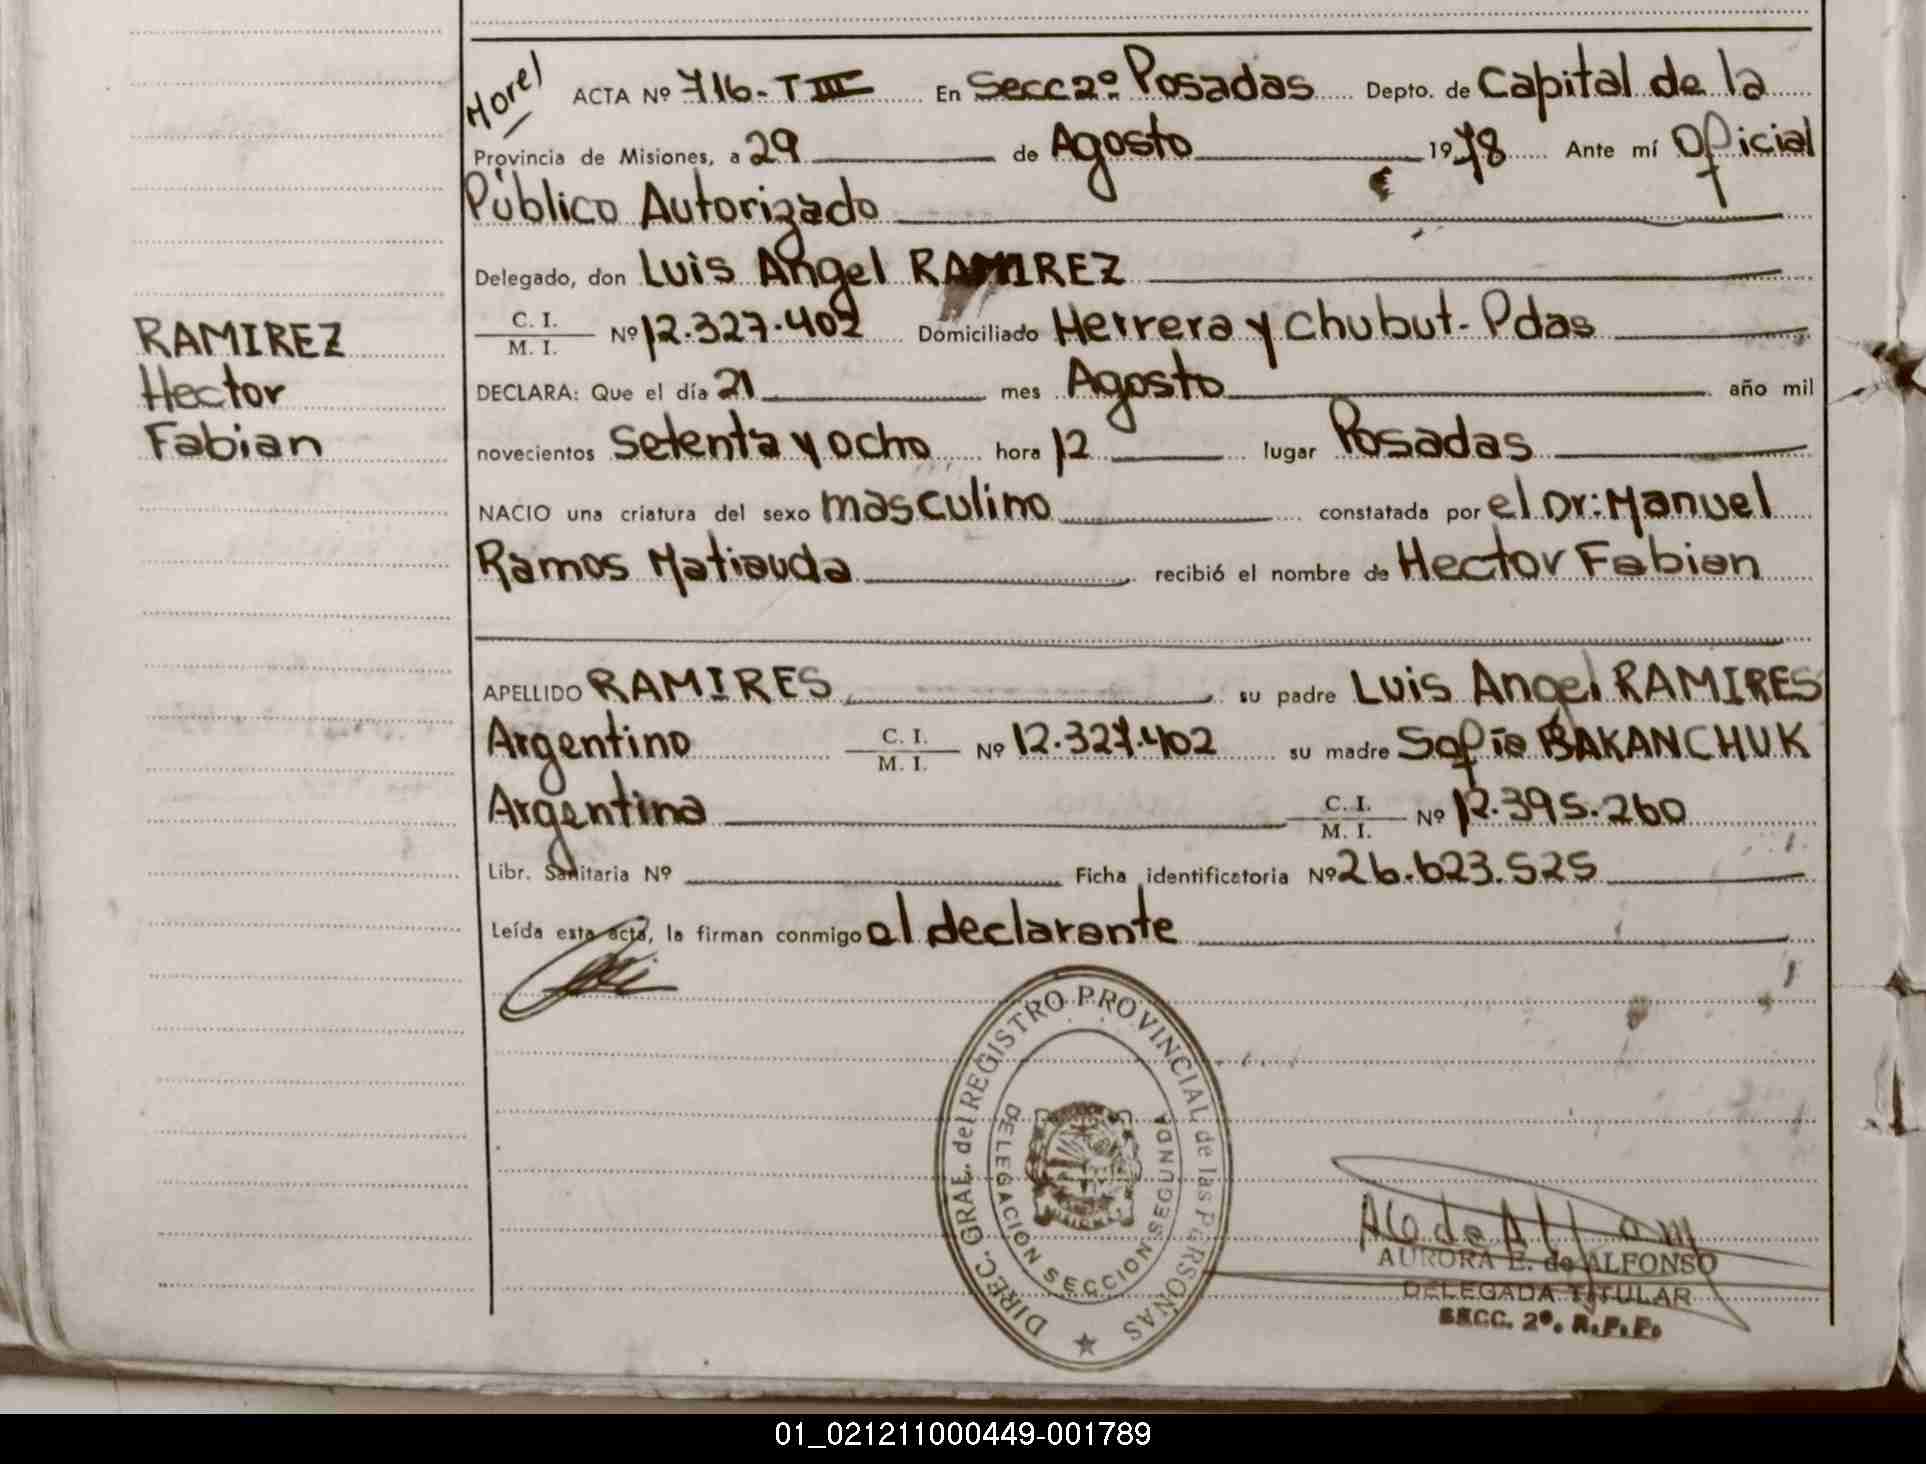 Morel
ACTA Nº 716-T III En Secc 2º Posadas Depto. de Capital de la
Provincia de Misiones, a 29 de Agosto 1978 Ante mí Oficial
Público Autorizado
Delegado, don Luis Angel RAMIREZ
C. I.
M. I. Nº 12.327.402 Domiciliado Herrera y Chubut - Pdas
DECLARA: Que el día 21 mes Agosto año mil
novecientos Setenta y ocho hora 12 lugar Posadas
NACIO una criatura del sexo masculino constatada por el Dr: Manuel
Ramos Matiauda recibió el nombre de Hector Fabian
APELLIDO RAMIRES su padre Luis Angel RAMIRES
Argentino C. I.
M. I. Nº 12.327.402 su madre Sofia BAKANCHUK
Argentina C. I.
M. I. Nº 12.395.260
Libr. Sanitaria Nº Ficha identificatoria Nº 26.623.525
Leída esta acta, la firman conmigo el declarante
RAMIREZ
Hector
Fabian
DIREC. GRAL. del REGISTRO PROVINCIAL de las PERSONAS
DELEGACION SECCION SEGUNDA
MISIONES
AURORA E. de ALFONSO
DELEGADA TITULAR
SECC. 2º. R.P.P.
01_021211000449-001789